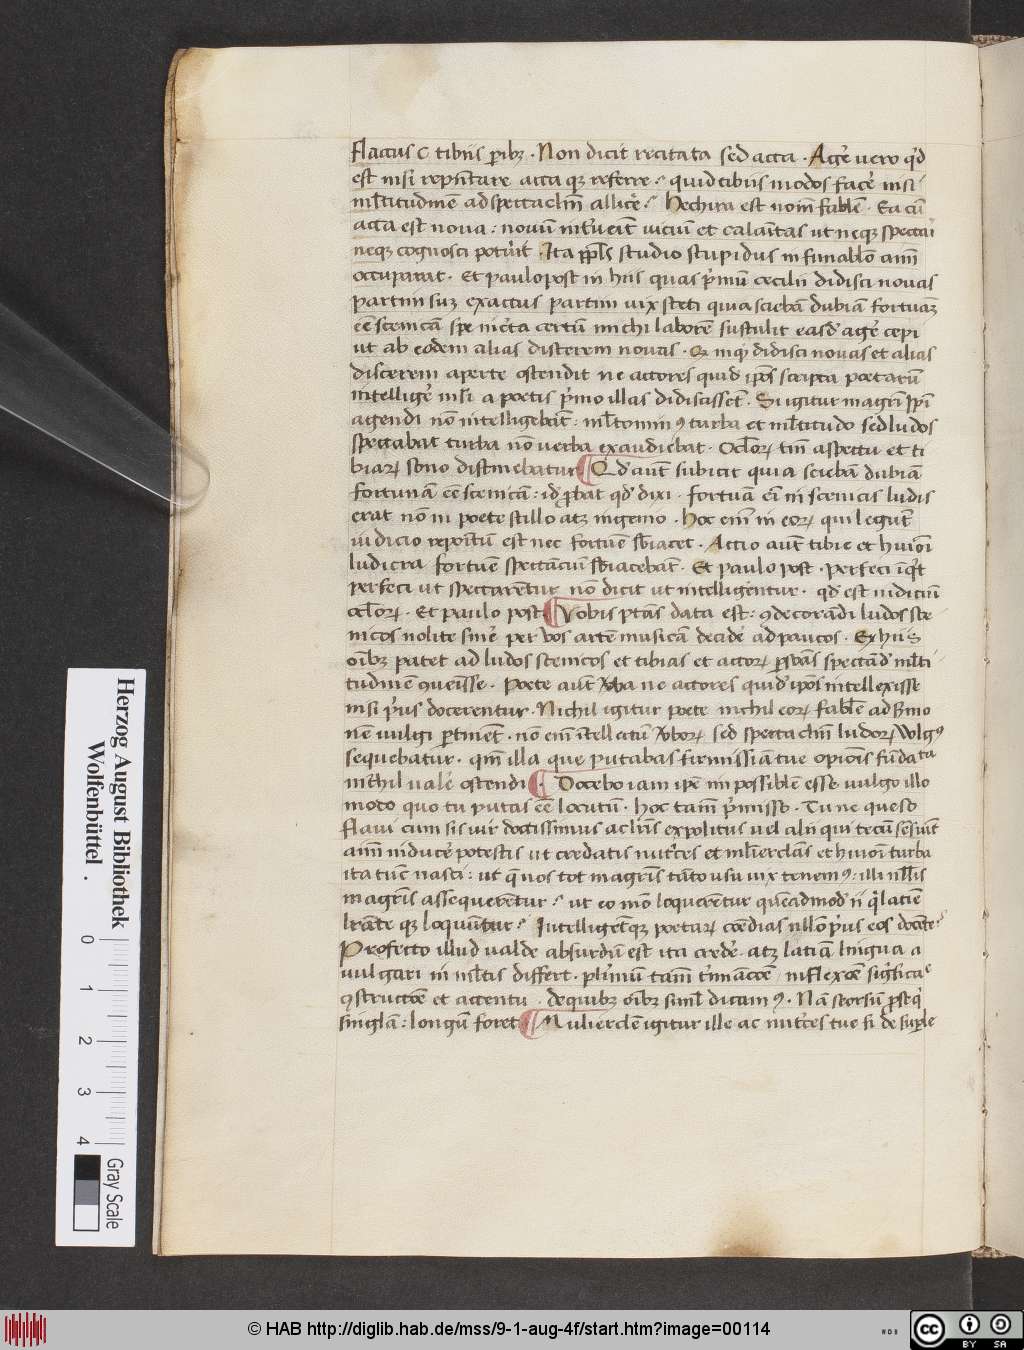 Flaccus C tibiis ꝑibꝫ . Non dicit recitata sed acta . Agē vero qd̓
est nisi rep̄n̄tare acta qꝫ referre .ᷣ quid tibiis modos facē nisi
ml̄titudinē ad spectaclm̄ allicē .ᷣ Hechira est nom̄ fabl̄e . Ea cū
acta est noua : nouū int̓ueīt viciū et calaītas ut neqꝫ spectaī
neqꝫ cognosci potuīt . Ita ppl̄s studio stupidus in funabl̄o aīm
occuparat . Et paulopost in hiis quas p̓mū cecilii didisci nouas
partim suꝫ exactus partim vix steti quia sciebā dubiā fortunā
eē scenicā spe incta certū michi laborē sustulit easd̓ agē cepi
ut ab eodem alias discerem nouas . inqͥ didisci nouas et alias
discerem aperte ostendit ne actores quid ip̄os scripta poetarū
intelligē nisi a poetis p̓mo illas didicissēt . Si igitur magr̄i ip̄i
agendi nō intelligebāt : ml̄tomin ꝯ turba et ml̄titudo sed ludos
spectabat turba nō verba exaudiebat . Ocl̄oꝝ tm̄ aspectu et ti
biaꝝ sono distinebatur Qd̓ aūt subicit quia sciebā dubiā
fortunā eē scenicā : id ꝓbat qd̓ dixi . fortuā eī in scenicis ludis
erat nō in poete stillo atꝫ ingenio . Hoc eīm in eoꝝ qui legūt
iudicio repoītū est nec fortune sb̄iacet . Actio aūt tibie et huiōi
ludicra fortuē spectantiū sb̄iacebāt . Et paulo post . perfeci īqͥt
perfeci ut spectarentur nō dicit ut intelligēntur . qd̓ est iudiciū
ocl̄oꝝ . Et paulo post Vobis ptās data est : ꝯdecorādi ludos sce
nicos nolite sinē per vos artē musicā decidē ad paucos . Ex hiis
oībꝫ patet ad ludos scenicos et tibias et actoꝝ ꝑsōās spectād̓ ml̄ti
tudinē ꝯueīsse . Poete aūt vb̓a ne actores quid̓ ip̄os intellexisse
nisi p̓us docerentur . Nichil igitur poete nichil eoꝝ fabl̄e ad sm̓o
nē vulgi ꝑtinēt . nō eīm ītellectū vb̓oꝝ sed spectaclm̄ ludoꝝ volgꝰ
sequebatur . qm̄ illa que putabas firmissīa tue opiōis fūdata
michil valē ostendi . Docebo iam ip̄e impossiblē esse vulgo illo
moto quo tu putas eē locutū . hoc tam̄ p̓misso . Tu ne queso
flaui cum sis vir doctissimus ac lrīs expolitus vel alii qui tecū sēsiūt
aīm inducē potestis ut credatis nut̓ces et ml̄iercl̄as et huiōi turba
ita tūc nasci : ut q̄ nos tot magrīs tāto vsu vix tenemꝰ : illi nll̄is
magrīs assequerētur .ᷣ ut eo mō loquerētur quēadmod̓ ii qͥ latiē
lrāte qꝫ loquūtur .ᷣ Intelligētqꝫ poetaꝝ cōedias nll̄o p̓us eos docēte .ᷣ
Profecto illud valde absurdū est ita credē . atꝫ latīa lingua a
vulgari in ml̄tis differt . pl̓imū tam̄ t̓minacōe inflexōe sig̓fica
ꝯstructōe et accentu . de quibꝫ oībꝫ siml̄ dicam ꝰ . Nā seorsū ꝓseqͥ
singlā : longū foret Mulierclē igitur ille ac nut̓ces tue si de suple
Herzog August Bibliothek
Wolfenbüttel .
0 1 2 3 4
Gray Scale
© HAB http://diglib.hab.de/mss/9-1-aug-4f/start.htm?image=00114
WDB
cc BY SA